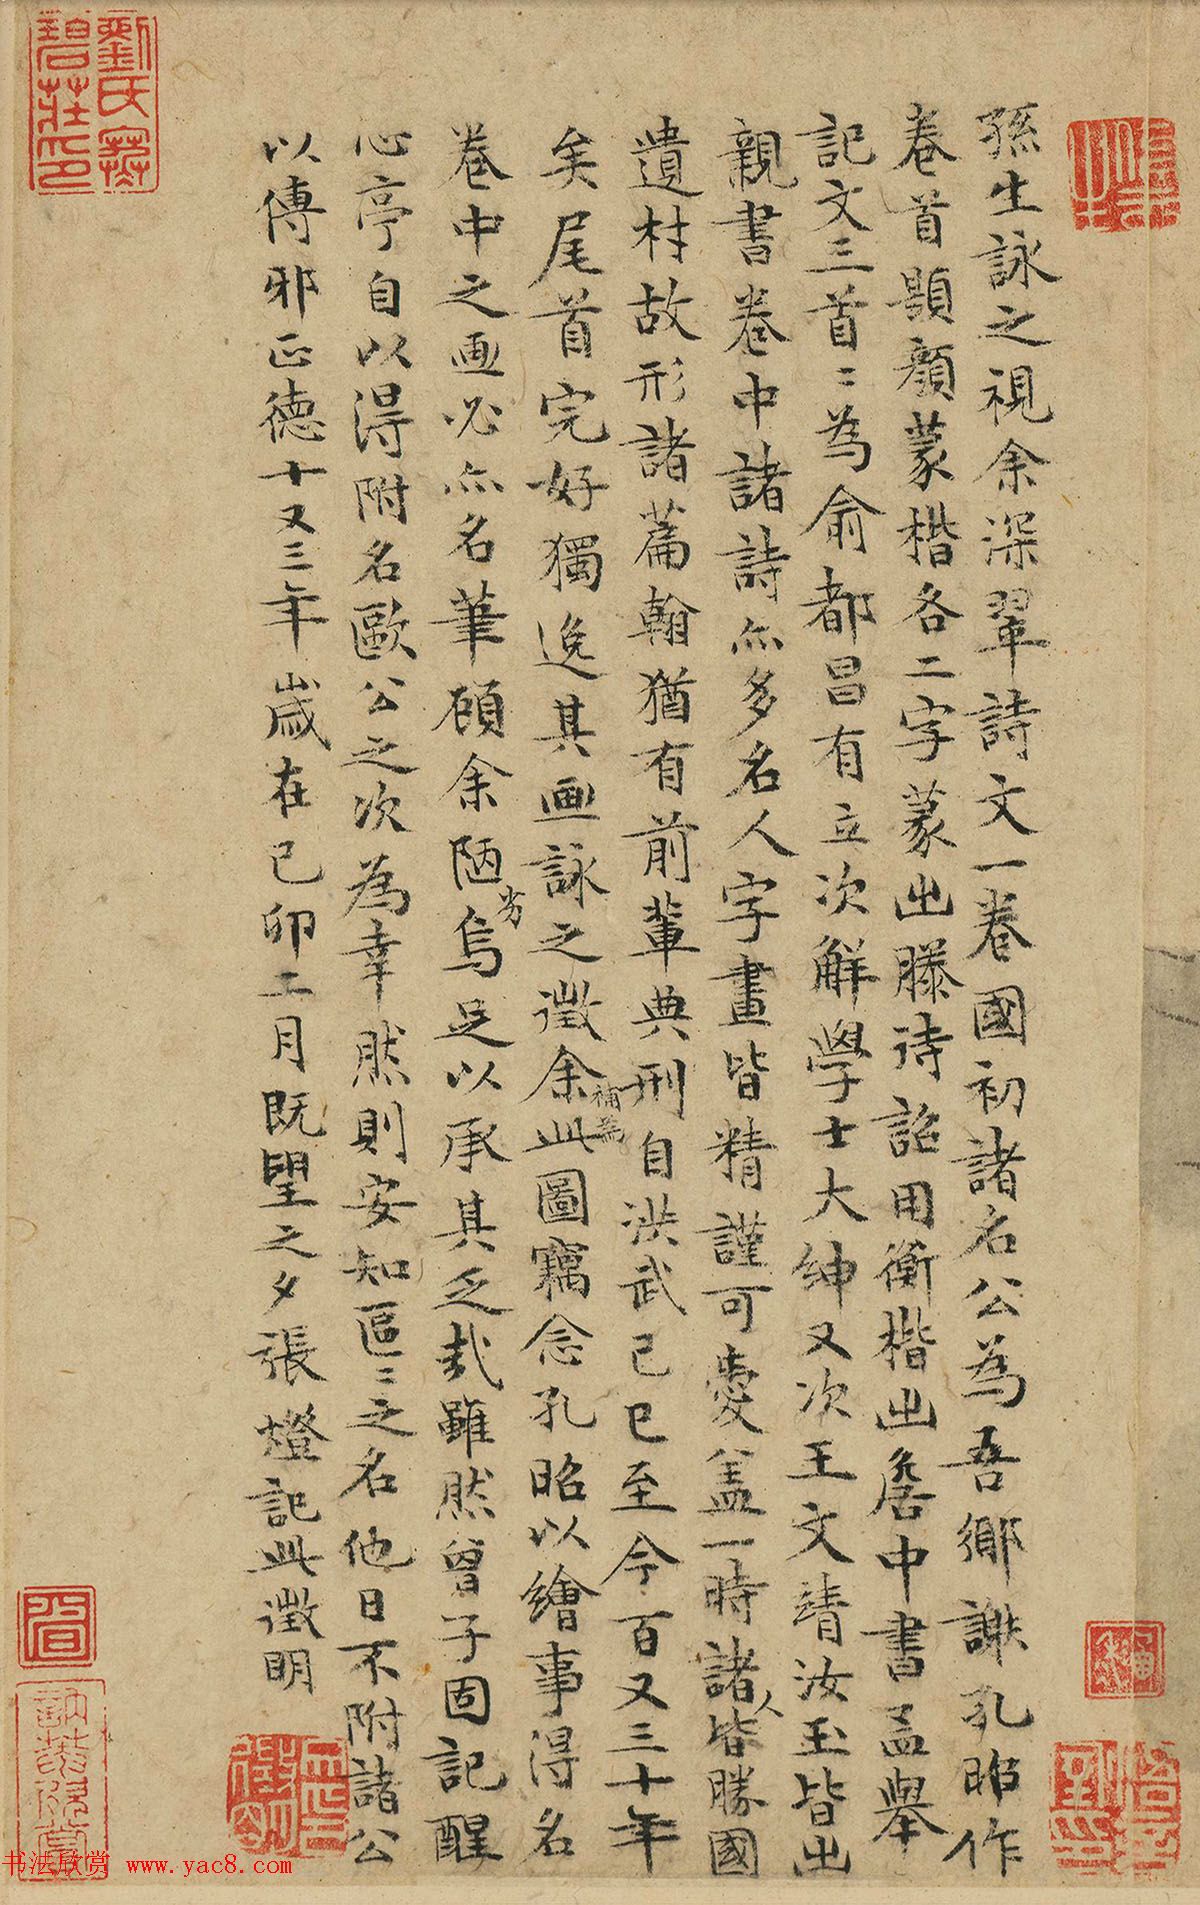 孫生詠之視余深翠詩文一卷國初諸名公為吾鄉謝孔昭作
卷首顯額蒙楷各二字蒙出滕待詔用衡楷出詹中書孟舉
記文三首〻為俞都昌有立次解學士大紳又次王文靖汝玉皆出
親書卷中諸詩亦多名人字畫皆精謹可愛蓋一時諸人皆勝國
遺材故形諸篇翰猶有前輩典刑自洪武己巳至今百又三十年
矣尾首完好獨逸其画詠之徵余補為此圖竊念孔昭以繪事得名
卷中之画必亦名筆顧余陋劣烏足以承其乏哉雖然曾子固記醒
心亭自以得附名歐公之次為幸然則安知區〻之名他日不附諸公
以傳邪正德十又三年歲在己卯二月既望之夕張燈記此徵明
劉氏寒碧莊印
書法欣賞 www.yac8.com